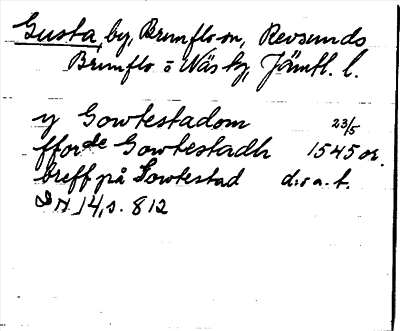 Gusta, by, Brunflo sn, Revsunds
Brunflo o Näs tg, Jämtl. l.
y Gowtestadom 23/5
fforde Gowtestadh 1545 or.
breff på Gowtestad d:o a.t.
DN 14, s. 812